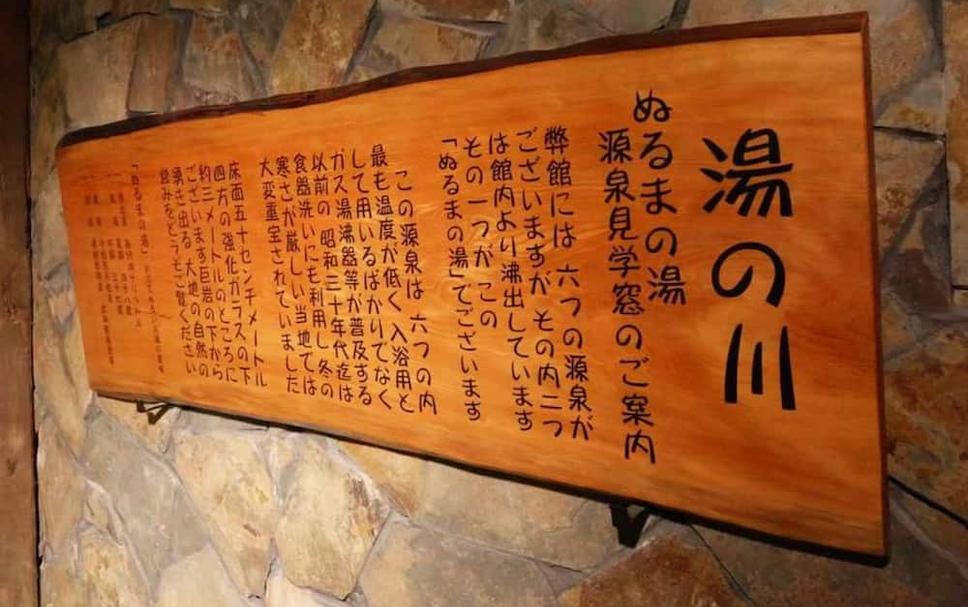 湯の川
ぬるまの湯
源泉見学窓のご案内
弊館には 六つの源泉が
ございますが その内二つ
は館内より沸出しています
その一つが この
「ぬるまの湯」でございます
この源泉は 六つの内
最も温度が低く 入浴用と
して用いるばかりでなく
ガス湯沸器等が普及する
以前の 昭和三十年代迄は
食器洗いにも利用し 冬の
寒さが厳しい当地では
大変重宝されていました
床面五十センチメートル
四方の強化ガラスの下
約三メートルのところに
ございます巨岩の下から
湧き出る 大地の自然の
恵みをどうぞご覧ください
「ぬるまの湯」